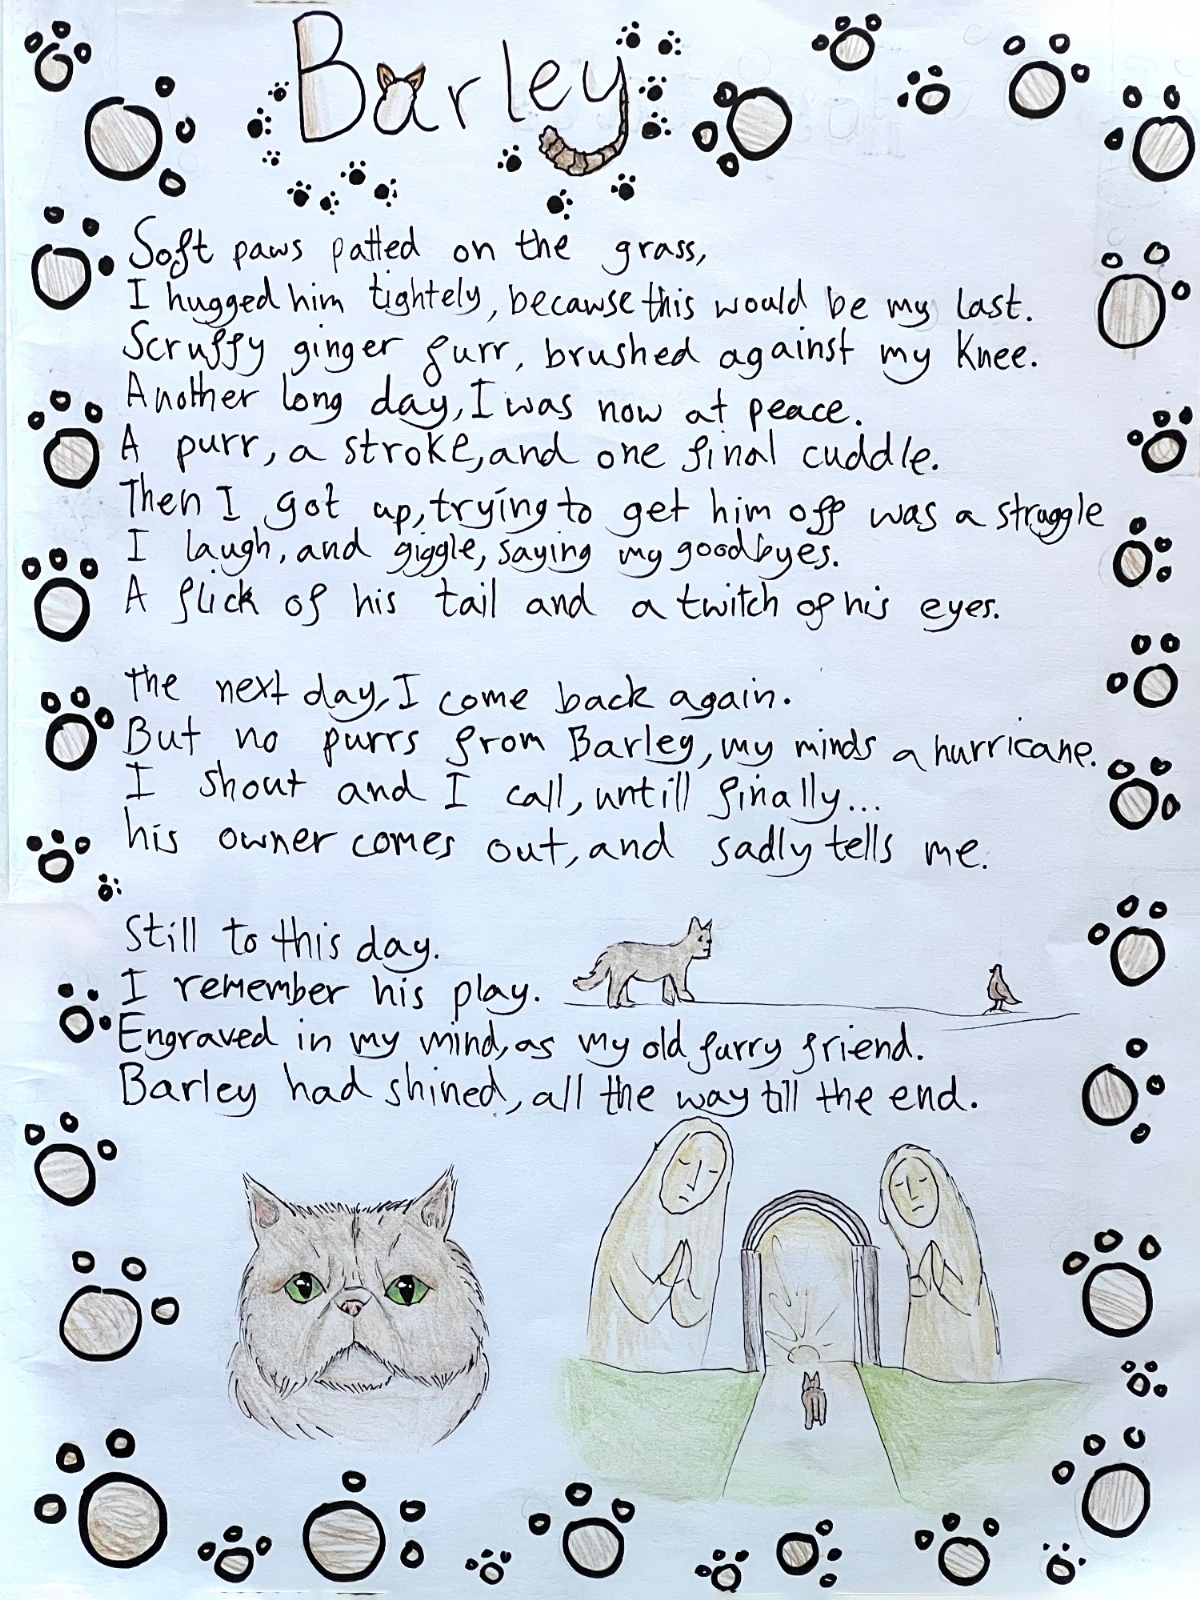 Barley
Soft paws patted on the grass,
I hugged him tightely, becawse this would be my last.
Scruffy ginger furr, brushed against my knee.
Another long day, I was now at peace.
A purr, a stroke, and one final cuddle.
Then I got up, trying to get him off was a struggle
I laugh, and giggle, saying my goodbyes.
A flick of his tail and a twitch of his eyes.
the next day, I come back again.
But no purrs from Barley, my minds a hurricane.
I shout and I call, untill finally...
his owner comes out, and sadly tells me.
Still to this day.
I remember his play.
Engraved in my mind, as my old furry friend.
Barley had shined, all the way till the end.